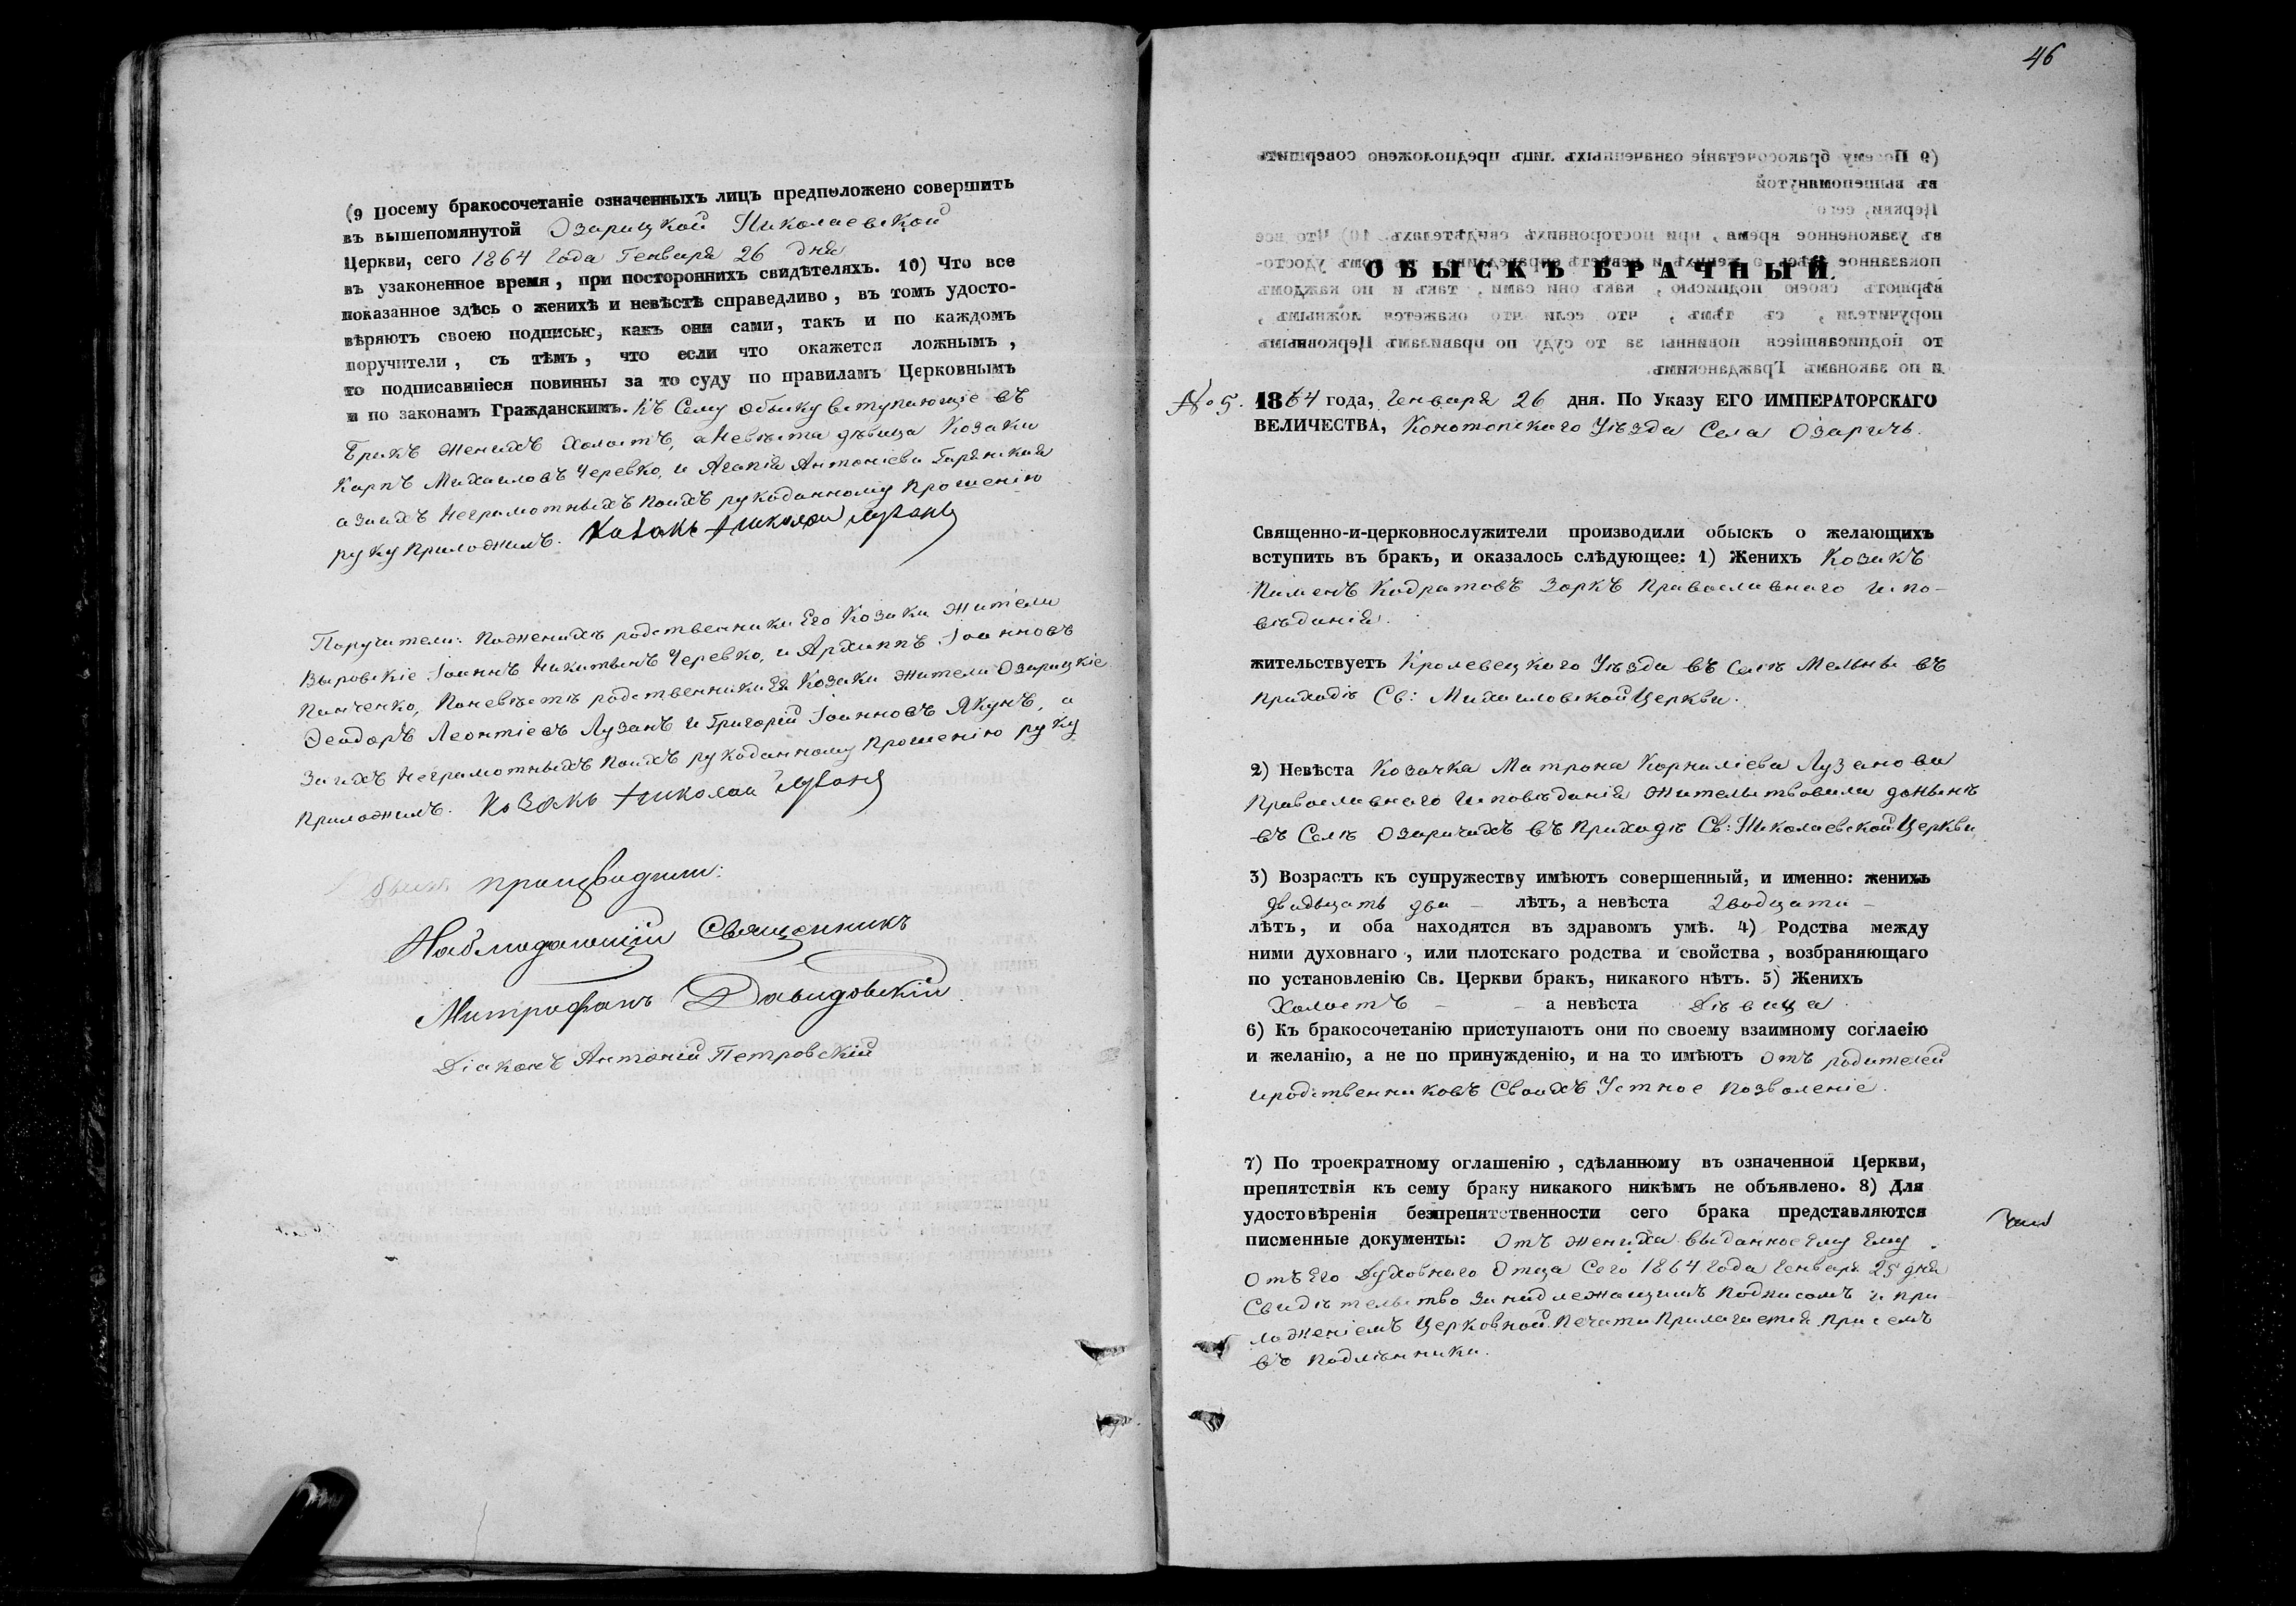 (9 Посему бракосочетаніе означенныхъ лицъ предположено совершить
въ вышепомянутой Озарицкой Николаевской
Церкви, сего 1864 года Генваря 26 дня
въ узаконенное время, при постороннихъ свидѣтеляхъ. 10) Что все
показанное здѣсь о женихѣ и невѣстѣ справедливо, въ томъ удосто-
вѣряютъ своею подписью, какъ они сами, такъ и по каждомъ
поручители, съ тѣмъ, что если что окажется ложнымъ,
то подписавшіеся повинны за то суду по правиламъ Церковнымъ
и по законамъ Гражданскимъ. Къ Сему обыску вступающіе въ
бракъ женихъ холостъ, а Невѣста дѣвица Козаки
Карпъ Михаиловъ Черевко, и Агапія Антоніева Гирянская
а за ихъ неграмотныхъ по ихъ рукоданному прошенію
руку приложилъ. Козакъ Николай Лузанъ
Поручители: По женихѣ родственники Его Козаки жители
Выровскіе Іоаннъ Никитинъ Черевко, и Архиппъ Іоанновъ
Панченко, По невѣстѣ родственники Ея Козаки жители Озарицкіе
Ѳеодоръ Леонтіевъ Лузанъ и Григорій Іоанновъ Якунъ, а
За ихъ неграмотныхъ по ихъ рукоданному прошенію руку
приложилъ. Козакъ Николай Лузанъ
Обыскъ производили:
Наблюдающій Священникъ
Митрофанъ Давидовскій
Діаконъ Антоній Петровскій
46
ОБЫСКЪ БРАЧНЫЙ.
№ 5. 1864 года, Генваря 26 дня. По Указу ЕГО ИМПЕРАТОРСКАГО
ВЕЛИЧЕСТВА, Конотопскаго Уѣзда Села Озаричъ.
Священно-и-церковнослужители производили обыскъ о желающихъ
вступить въ бракъ, и оказалось слѣдующее: 1) Женихъ Козакъ
Пименъ Кодратовъ Зоркъ Православнаго Испо-
вѣданія.
жительствуетъ Кролевецкого Уѣзда въ Селѣ Мельнѣ въ
приходѣ Св: Михаиловской Церкви.
2) Невѣста Козачка Матрона Корниліева Лузанова
Православнаго Исповѣданія жительствовала донынѣ
въ Селѣ Озаричахъ въ Приходѣ Св: Николаевской Церкви
3) Возрастъ къ супружеству имѣютъ совершенный, и именно: женихъ
двадцать два – лѣтъ, а невѣста двадцати –
лѣтъ, и оба находятся въ здравомъ умѣ. 4) Родства между
ними духовнаго, или плотскаго родства и свойства, возбраняющаго
по установленію Св. Церкви бракъ, никакого нѣтъ. 5) Женихъ
Холостъ – – а невѣста Дѣвица.
6) Къ бракосочетанію приступаютъ они по своему взаимному согласію
и желанію, а не по принужденію, и на то имѣютъ отъ родителей
и родственниковъ Своихъ Устное позволеніе.
7) По троекратному оглашенію, сдѣланному въ означенной Церкви,
препятствія къ сему браку никакого никѣмъ не объявлено. 8) Для
удостовѣренія безпрепятственности сего брака представляются
писменные документы: Отъ жениха выданное Ему Ему
Отъ Его Духовнаго Отца Сего 1864 года Генваря 25 дня
Свидѣтельство за надлежащимъ подписомъ и при-
ложеніемъ Церковной печати Прилагается при семъ
въ подлѣнники.